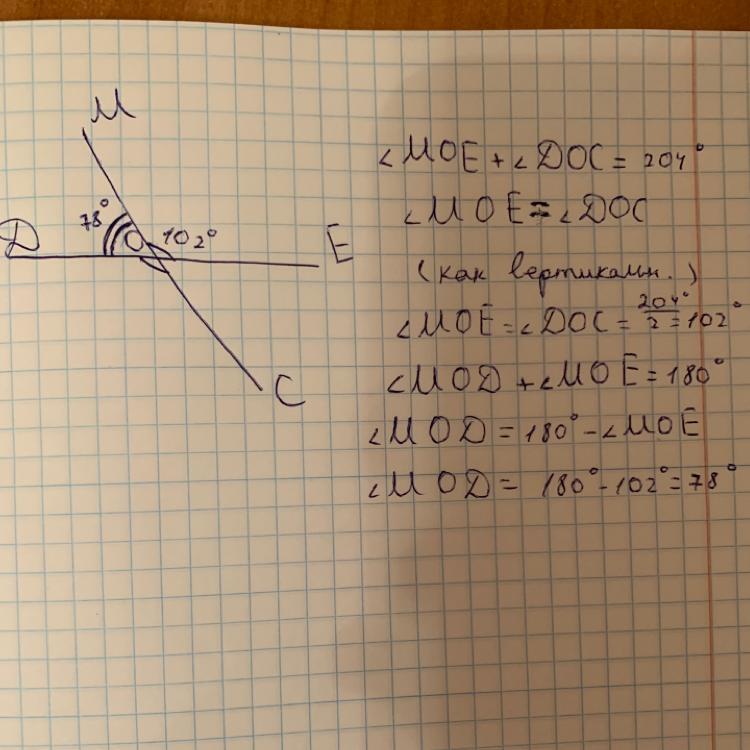 M
78°
D
O
102°
E
C
∠MOE + ∠DOC = 204°
∠MOE = ∠DOC
(как вертикальн.)
∠MOE = ∠DOC = 204°/2 = 102°
∠MOD + ∠MOE = 180°
∠MOD = 180° - ∠MOE
∠MOD = 180° - 102° = 78°